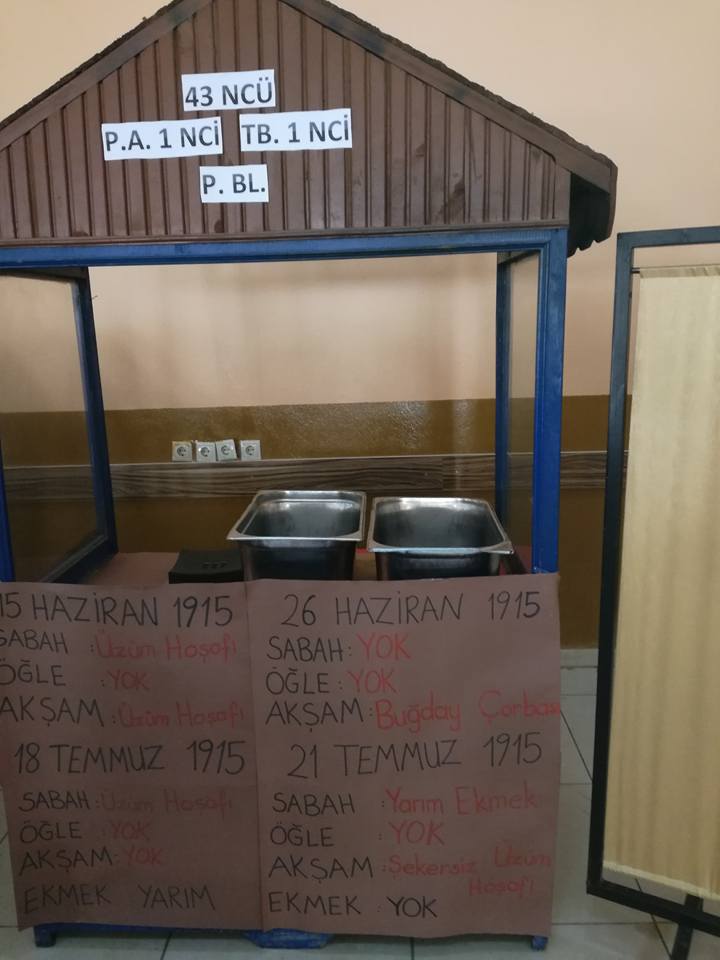 43 NCÜ
P.A. 1 NCİ TB. 1 NCİ
P. BL.
15 HAZİRAN 1915
SABAH :Üzüm Hoşafı
ÖĞLE :YOK
AKŞAM :Üzüm Hoşafı
18 TEMMUZ 1915
SABAH :Üzüm Hoşafı
ÖĞLE :YOK
AKŞAM:YOK
EKMEK YARIM
26 HAZİRAN 1915
SABAH:YOK
ÖĞLE:YOK
AKŞAM:Buğday Çorbası
21 TEMMUZ 1915
SABAH :Yarım Ekmek
ÖĞLE :YOK
AKŞAM :Şekersiz Üzüm
Hoşafı
EKMEK :YOK